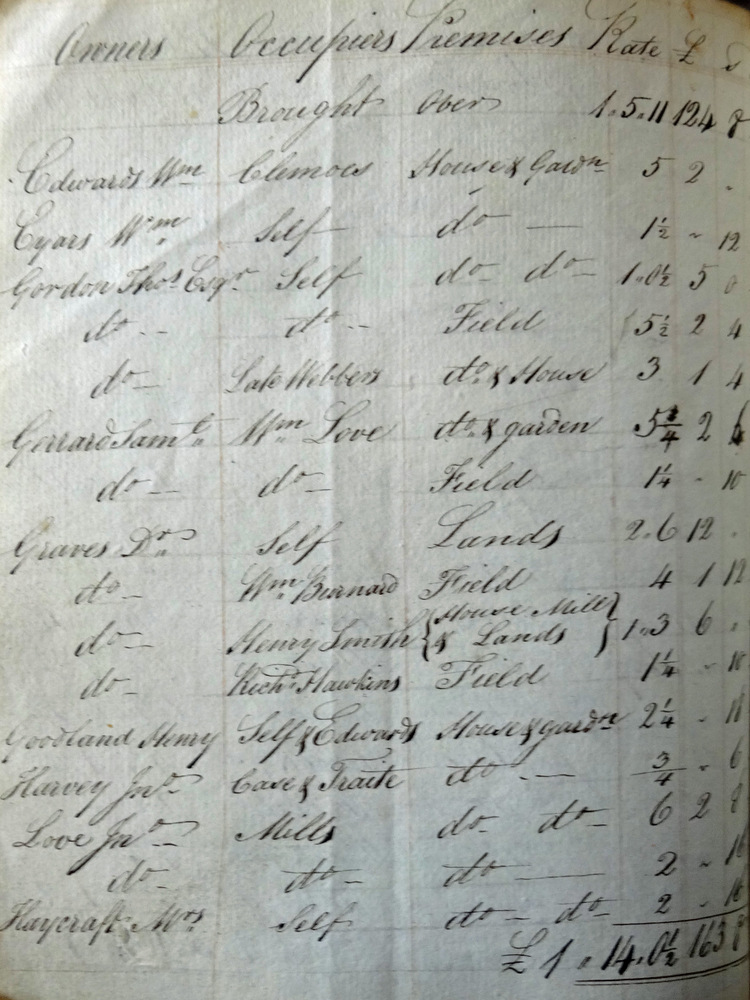 Owners Occupiers Premises Rate £ s
Brought Over 1.5.11 124 8
Edwards Wm Clemoes House & Gardn 5 2 "
Eyars Wm Self do — 1½ " 12
Gordon Thos Esqr Self do do 1.0½ 5 0
do do Field 5½ 2 4
do Late Webbers do & House 3 1 4
Gerrard Saml Wm Love do & garden 5¼ 2
do do Field 1¼ " 10
Graves Dr Self Lands 2.6 12 "
do Wm Burnard Field 4 1 12
do Henry Smith { House Mill
& Lands } 1.3 6 "
do Richd Hawkins Field 1¼ " 10
Goodland Henry Self & Edwards House & gardn 2¼ "
Harvey Jno Case & Traite do — ¾ " 6
Love Jno Mills do do 6 2 8
do do do — 2 " 16
Haycraft Mrs Self do do 2 " 16
£ 1 " 14.0½ 163 8